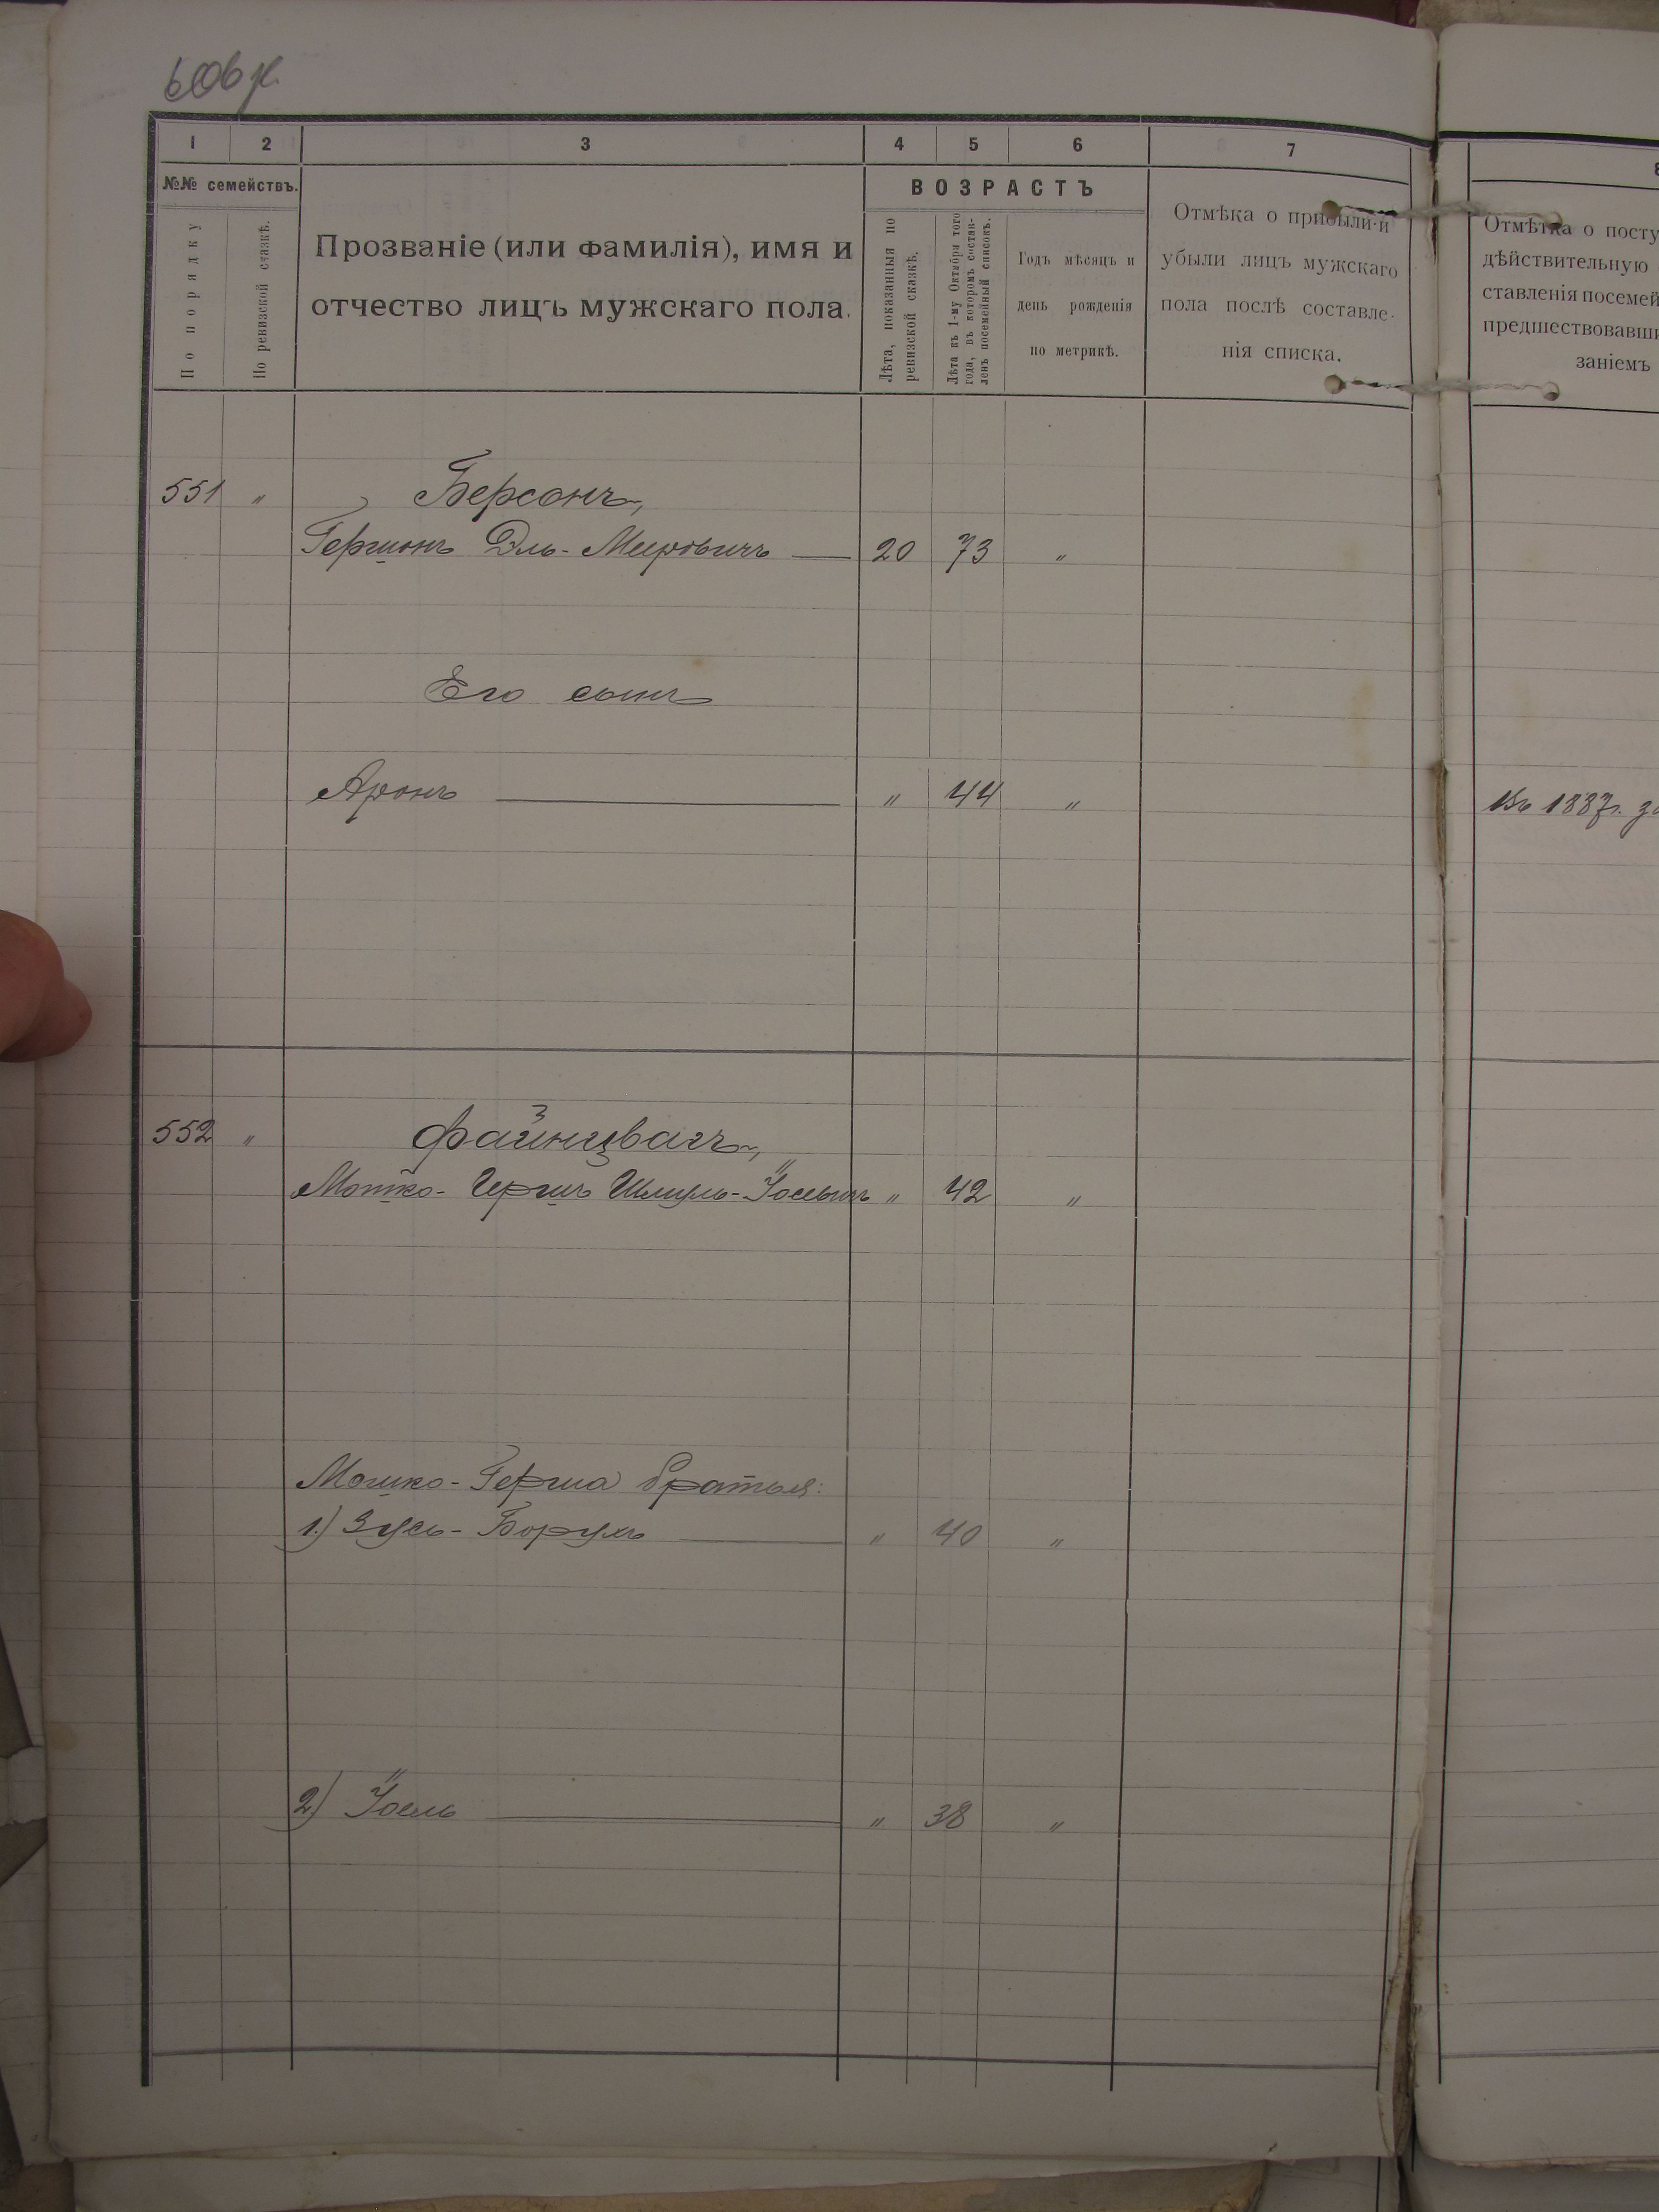 1 2 3 4 5 6 7 8
№№ семействъ.
По порядку
По ревизской сказкѣ.
Прозваніе (или фамилія), имя и
отчество лицъ мужскаго пола.
ВОЗРАСТЪ
Лѣта, показанныя по
ревизской сказкѣ.
Лѣта къ 1-му Октября того
года, въ которомъ состав-
ленъ посемейный списокъ.
Годъ мѣсяцъ и
день рожденія
по метрикѣ.
Отмѣка о прибыли и
убыли лицъ мужскаго
пола послѣ составле-
нія списка.
Отмѣтка о посту
дѣйствительную
ставленія посемей
предшествовавши
заніемъ
551 " Берсонъ,
Гершонъ Эль-Мировичъ 20 73 "
Его сынъ
Аронъ " 44 "
Въ 1887г.
552 " Файнцвагъ,
Мошко-Гершъ Шмуль-Іосевичъ " 42 "
Мошко-Герша братья:
1.) Зусь-Борухъ " 40 "
2) Іосель " 38 "